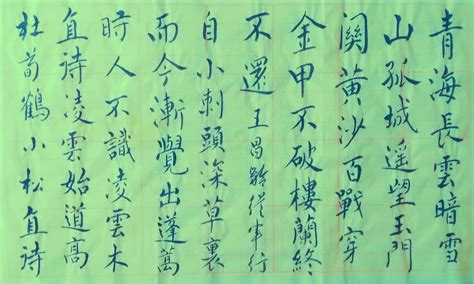 青海長雲暗雪
山孤城遥望玉門
関黄沙百戰穿
金甲不破樓蘭終
不還王昌齡從軍行
自小刺頭深草裏
而今漸覺出蓬蒿
時人不識凌雲木
直詩凌雲始道高
杜荀鶴小松直詩